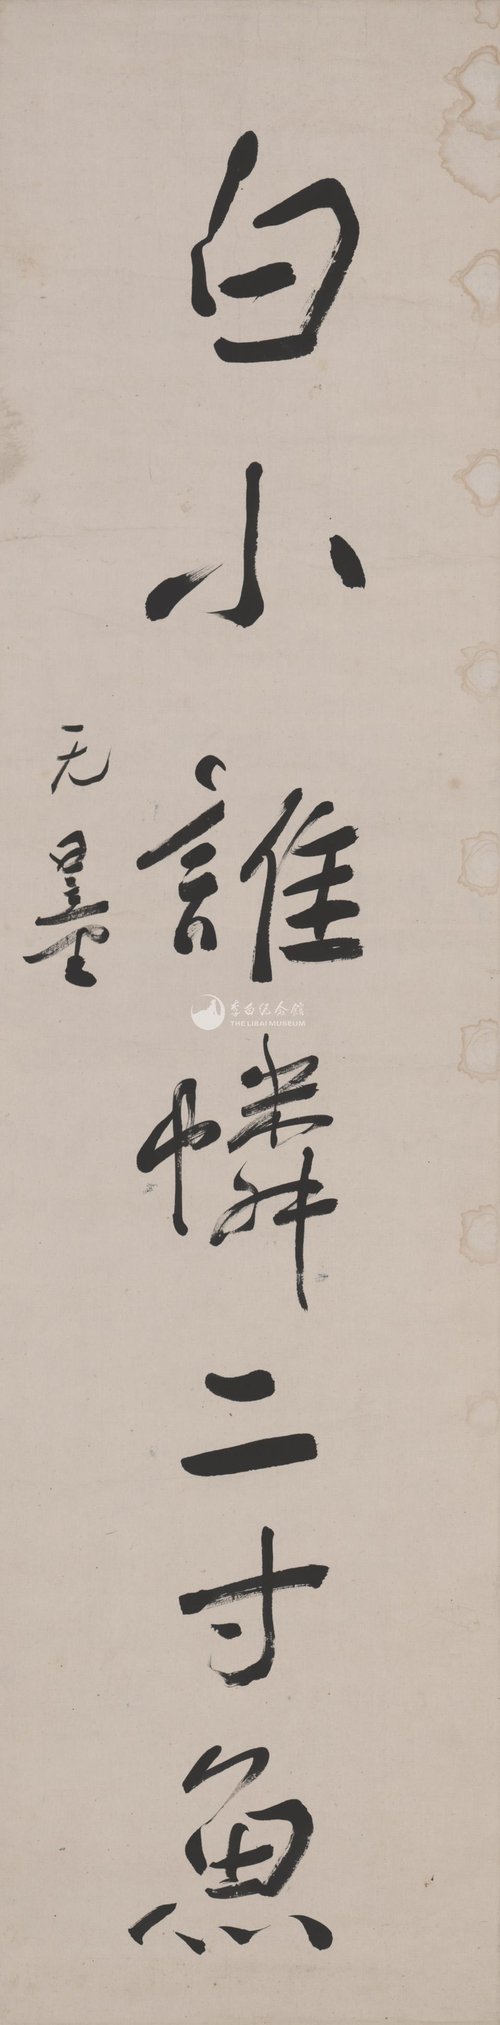 白小誰憐二寸魚
无量
李白纪念馆
THE LIBAI MUSEUM